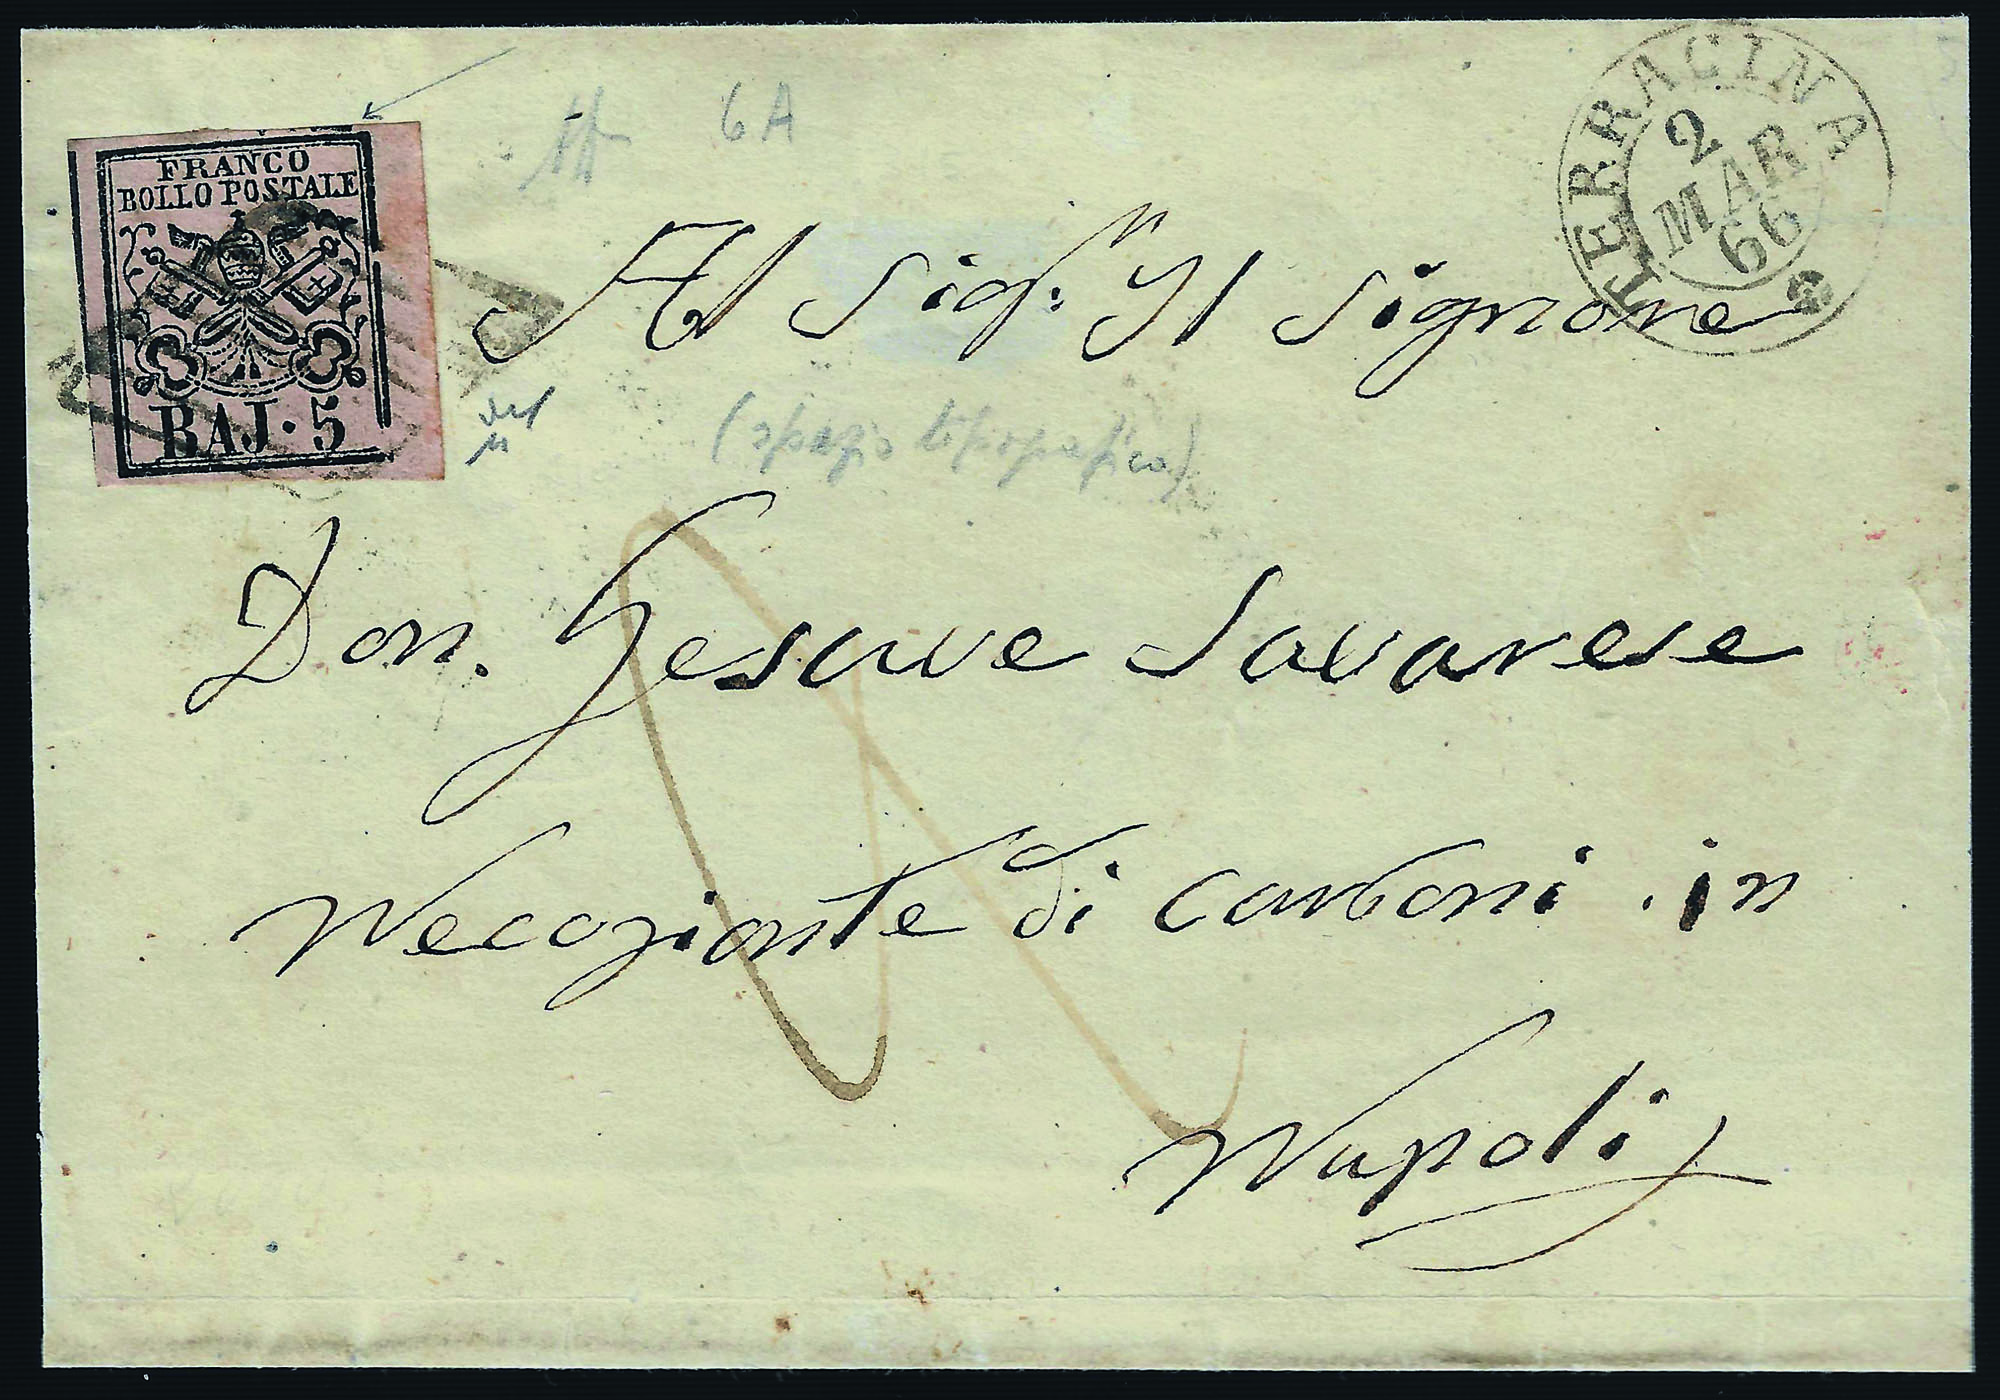 FRANCO
BOLLO POSTALE
BAJ. 5
6 A
TERRACINA
2
MAR
66
Al Sigr. Il Signore
(spazio tipografico)
Don. Gesuve Savarese
Necoziante di carboni. in
Napoli